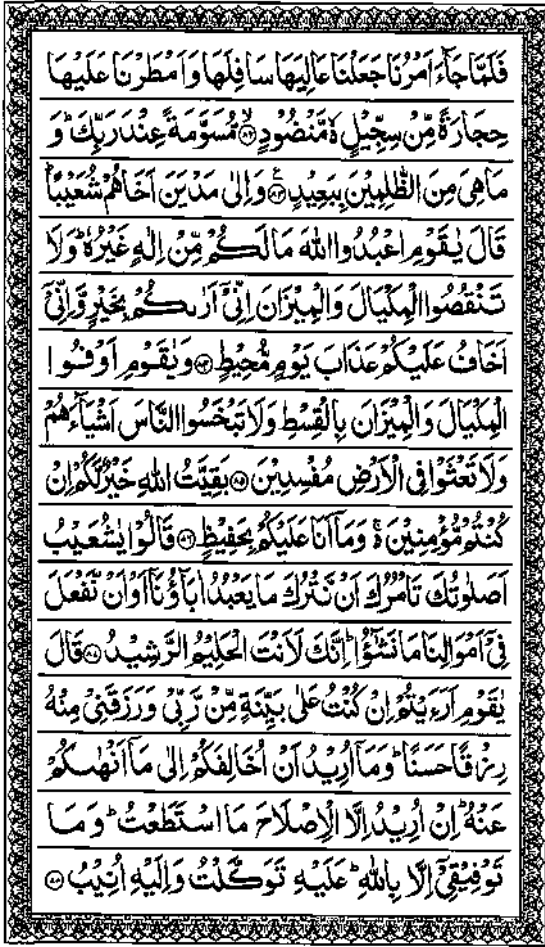 فَلَمَّا جَآءَ اَمْرُنَا جَعَلْنَا عَالِيَهَا سَافِلَهَا وَاَمْطَرْنَا عَلَيْهَا
حِجَارَةً مِّنْ سِجِّيْلٍ ۙ مَّنْضُوْدٍ ﴿۸۲﴾ۙ مُّسَوَّمَةً عِنْدَ رَبِّكَ ؕ وَ
مَا هِيَ مِنَ الظّٰلِمِيْنَ بِبَعِيْدٍ ﴿۸۳﴾ۧ وَاِلٰى مَدْيَنَ اَخَاهُمْ شُعَيْبًا ؕ
قَالَ يٰقَوْمِ اعْبُدُوا اللّٰهَ مَا لَكُمْ مِّنْ اِلٰهٍ غَيْرُهٗ ؕ وَلَا
تَنْقُصُوا الْمِكْيَالَ وَالْمِيْزَانَ اِنِّيْٓ اَرٰىكُمْ بِخَيْرٍ وَّاِنِّيْٓ
اَخَافُ عَلَيْكُمْ عَذَابَ يَوْمٍ مُّحِيْطٍ ﴿۸۴﴾ وَيٰقَوْمِ اَوْفُوا
الْمِكْيَالَ وَالْمِيْزَانَ بِالْقِسْطِ وَلَا تَبْخَسُوا النَّاسَ اَشْيَآءَهُمْ
وَلَا تَعْثَوْا فِي الْاَرْضِ مُفْسِدِيْنَ ﴿۸۵﴾ بَقِيَّتُ اللّٰهِ خَيْرٌ لَّكُمْ اِنْ
كُنْتُمْ مُّؤْمِنِيْنَ ۚ۬ وَمَآ اَنَا عَلَيْكُمْ بِحَفِيْظٍ ﴿۸۶﴾ قَالُوْا يٰشُعَيْبُ
اَصَلٰوتُكَ تَاْمُرُكَ اَنْ نَّتْرُكَ مَا يَعْبُدُ اٰبَآؤُنَآ اَوْ اَنْ نَّفْعَلَ
فِيْٓ اَمْوَالِنَا مَا نَشٰٓؤُا ؕ اِنَّكَ لَاَنْتَ الْحَلِيْمُ الرَّشِيْدُ ﴿۸۷﴾ قَالَ
يٰقَوْمِ اَرَءَيْتُمْ اِنْ كُنْتُ عَلٰى بَيِّنَةٍ مِّنْ رَّبِّيْ وَرَزَقَنِيْ مِنْهُ
رِزْقًا حَسَنًا ؕ وَمَآ اُرِيْدُ اَنْ اُخَالِفَكُمْ اِلٰى مَآ اَنْهٰىكُمْ
عَنْهُ ؕ اِنْ اُرِيْدُ اِلَّا الْاِصْلَاحَ مَا اسْتَطَعْتُ ؕ وَمَا
تَوْفِيْقِيْٓ اِلَّا بِاللّٰهِ ؕ عَلَيْهِ تَوَكَّلْتُ وَاِلَيْهِ اُنِيْبُ ﴿۸۸﴾